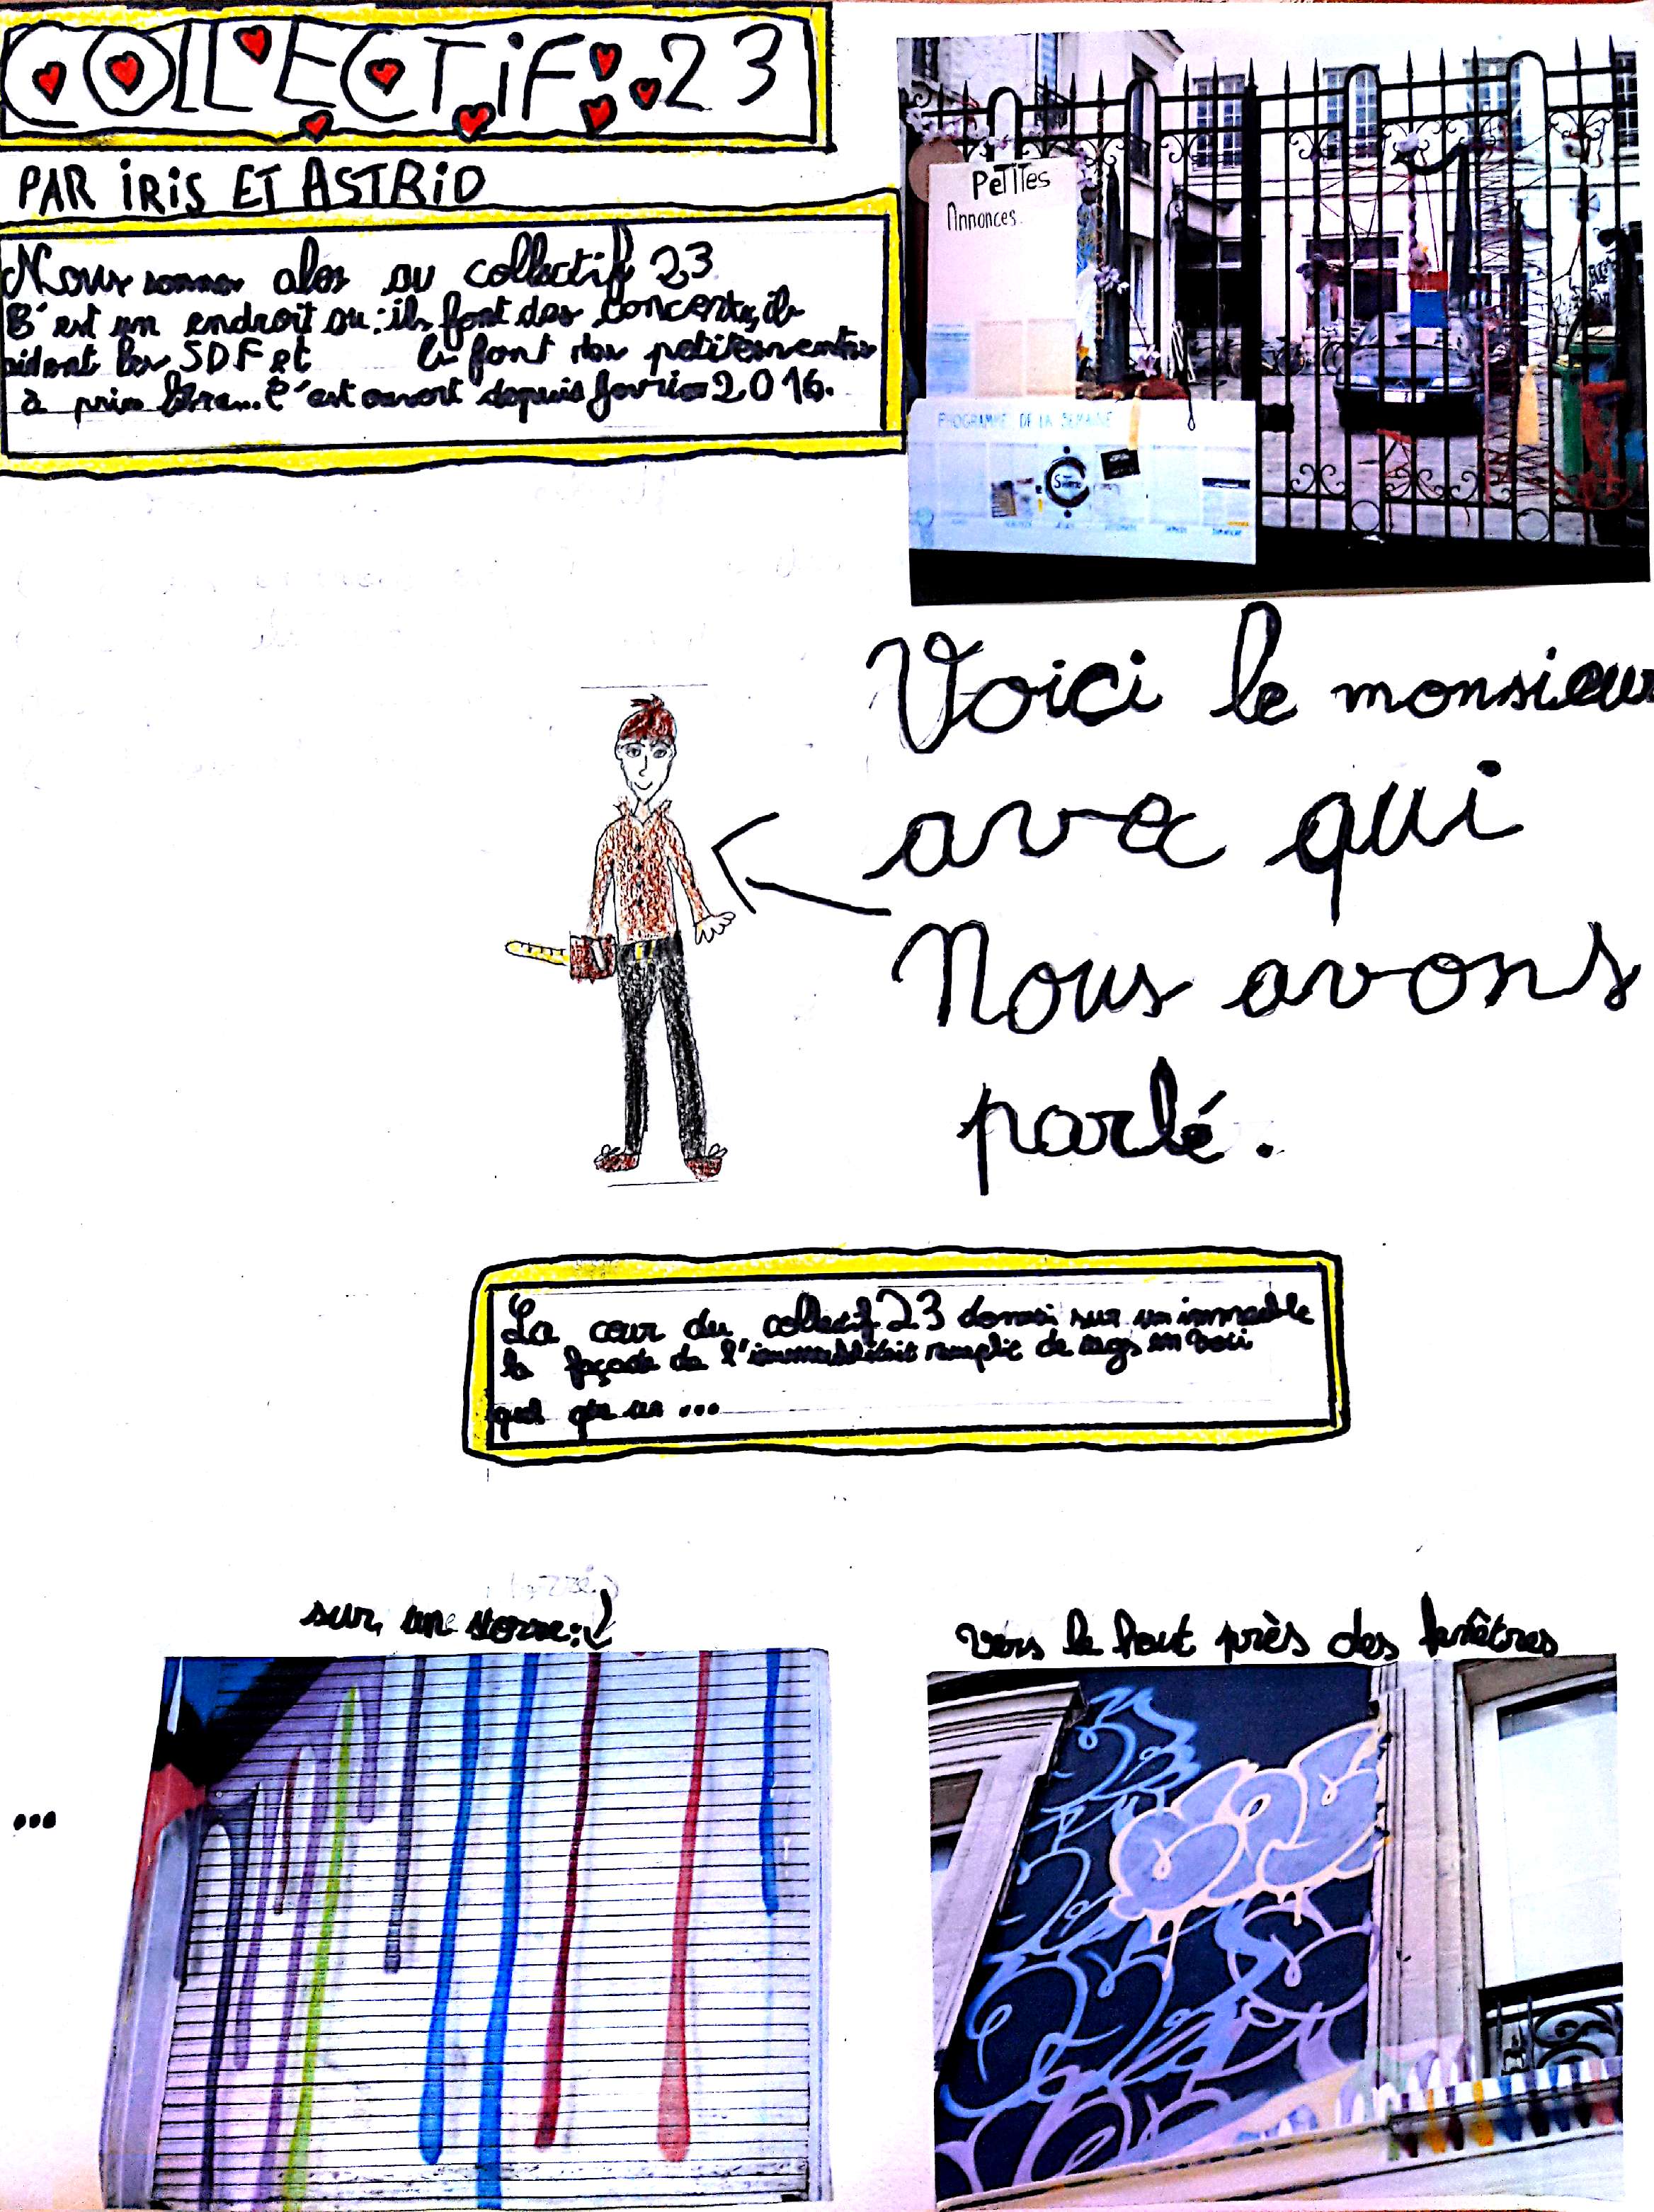 COLLECTIF 23
PAR IRIS ET ASTRID
Nous sommes alés au collectif 23
C'est un endroit ou : ils font des concerts, ils
aident les SDF et ils font des petites ventes
à prix libre... C'est ouvert depuis fevrier 2016.
PETITES
Annonces.
PROGRAMME DE LA SEMAINE
Voici le monsieur
avec qui
Nous avons
parlé.
La cour du collectif 23 donnai sur un immeuble
la façade de l'immeuble était remplit de tags en voici
quel qu'un ...
sur une store :
vers le haut près des fenêtres
...